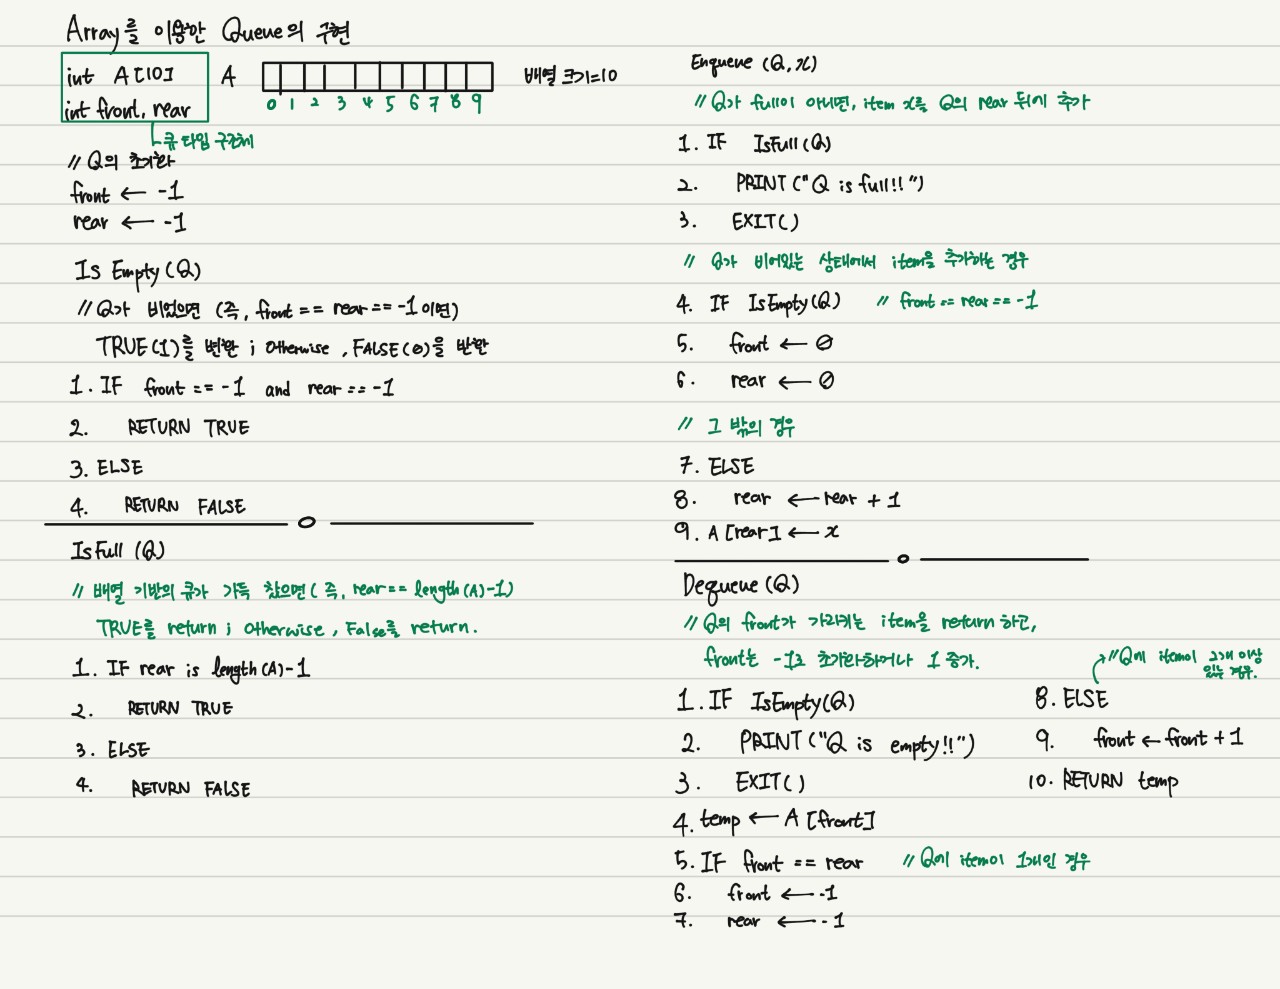 Array를 이용한 Queue의 구현
int A[10]
int front, rear
A
배열 크기=10
0 1 2 3 4 5 6 7 8 9
큐 타입 구조체
// Q의 초기화
front ← -1
rear ← -1
Is Empty(Q)
// Q가 비었으면 (즉, front == rear == -1 이면)
TRUE(1)를 반환 ; otherwise, FALSE(0)을 반환
1. IF front == -1 and rear == -1
2. RETURN TRUE
3. ELSE
4. RETURN FALSE
IsFull (Q)
// 배열 기반의 큐가 가득 찼으면 ( 즉, rear == length(A)-1)
TRUE를 return ; otherwise, False를 return.
1. IF rear is length(A)-1
2. RETURN TRUE
3. ELSE
4. RETURN FALSE
Enqueue (Q, x)
// Q가 full이 아니면, item x를 Q의 rear 뒤에 추가
1. IF IsFull(Q)
2. PRINT("Q is full!!")
3. EXIT()
// Q가 비어있는 상태에서 item을 추가하는 경우
4. IF IsEmpty(Q) // front == rear == -1
5. front ← 0
6. rear ← 0
// 그 밖의 경우
7. ELSE
8. rear ← rear + 1
9. A [rear] ← x
Dequeue (Q)
// Q의 front가 가리키는 item을 return 하고,
front는 -1로 초기화하거나 1 증가.
1. IF IsEmpty(Q)
2. PRINT("Q is empty!!")
3. EXIT()
4. temp ← A [front]
5. IF front == rear // Q에 item이 1개인 경우
6. front ← -1
7. rear ← -1
// Q에 item이 2개 이상
있는 경우.
8. ELSE
9. front ← front + 1
10. RETURN temp